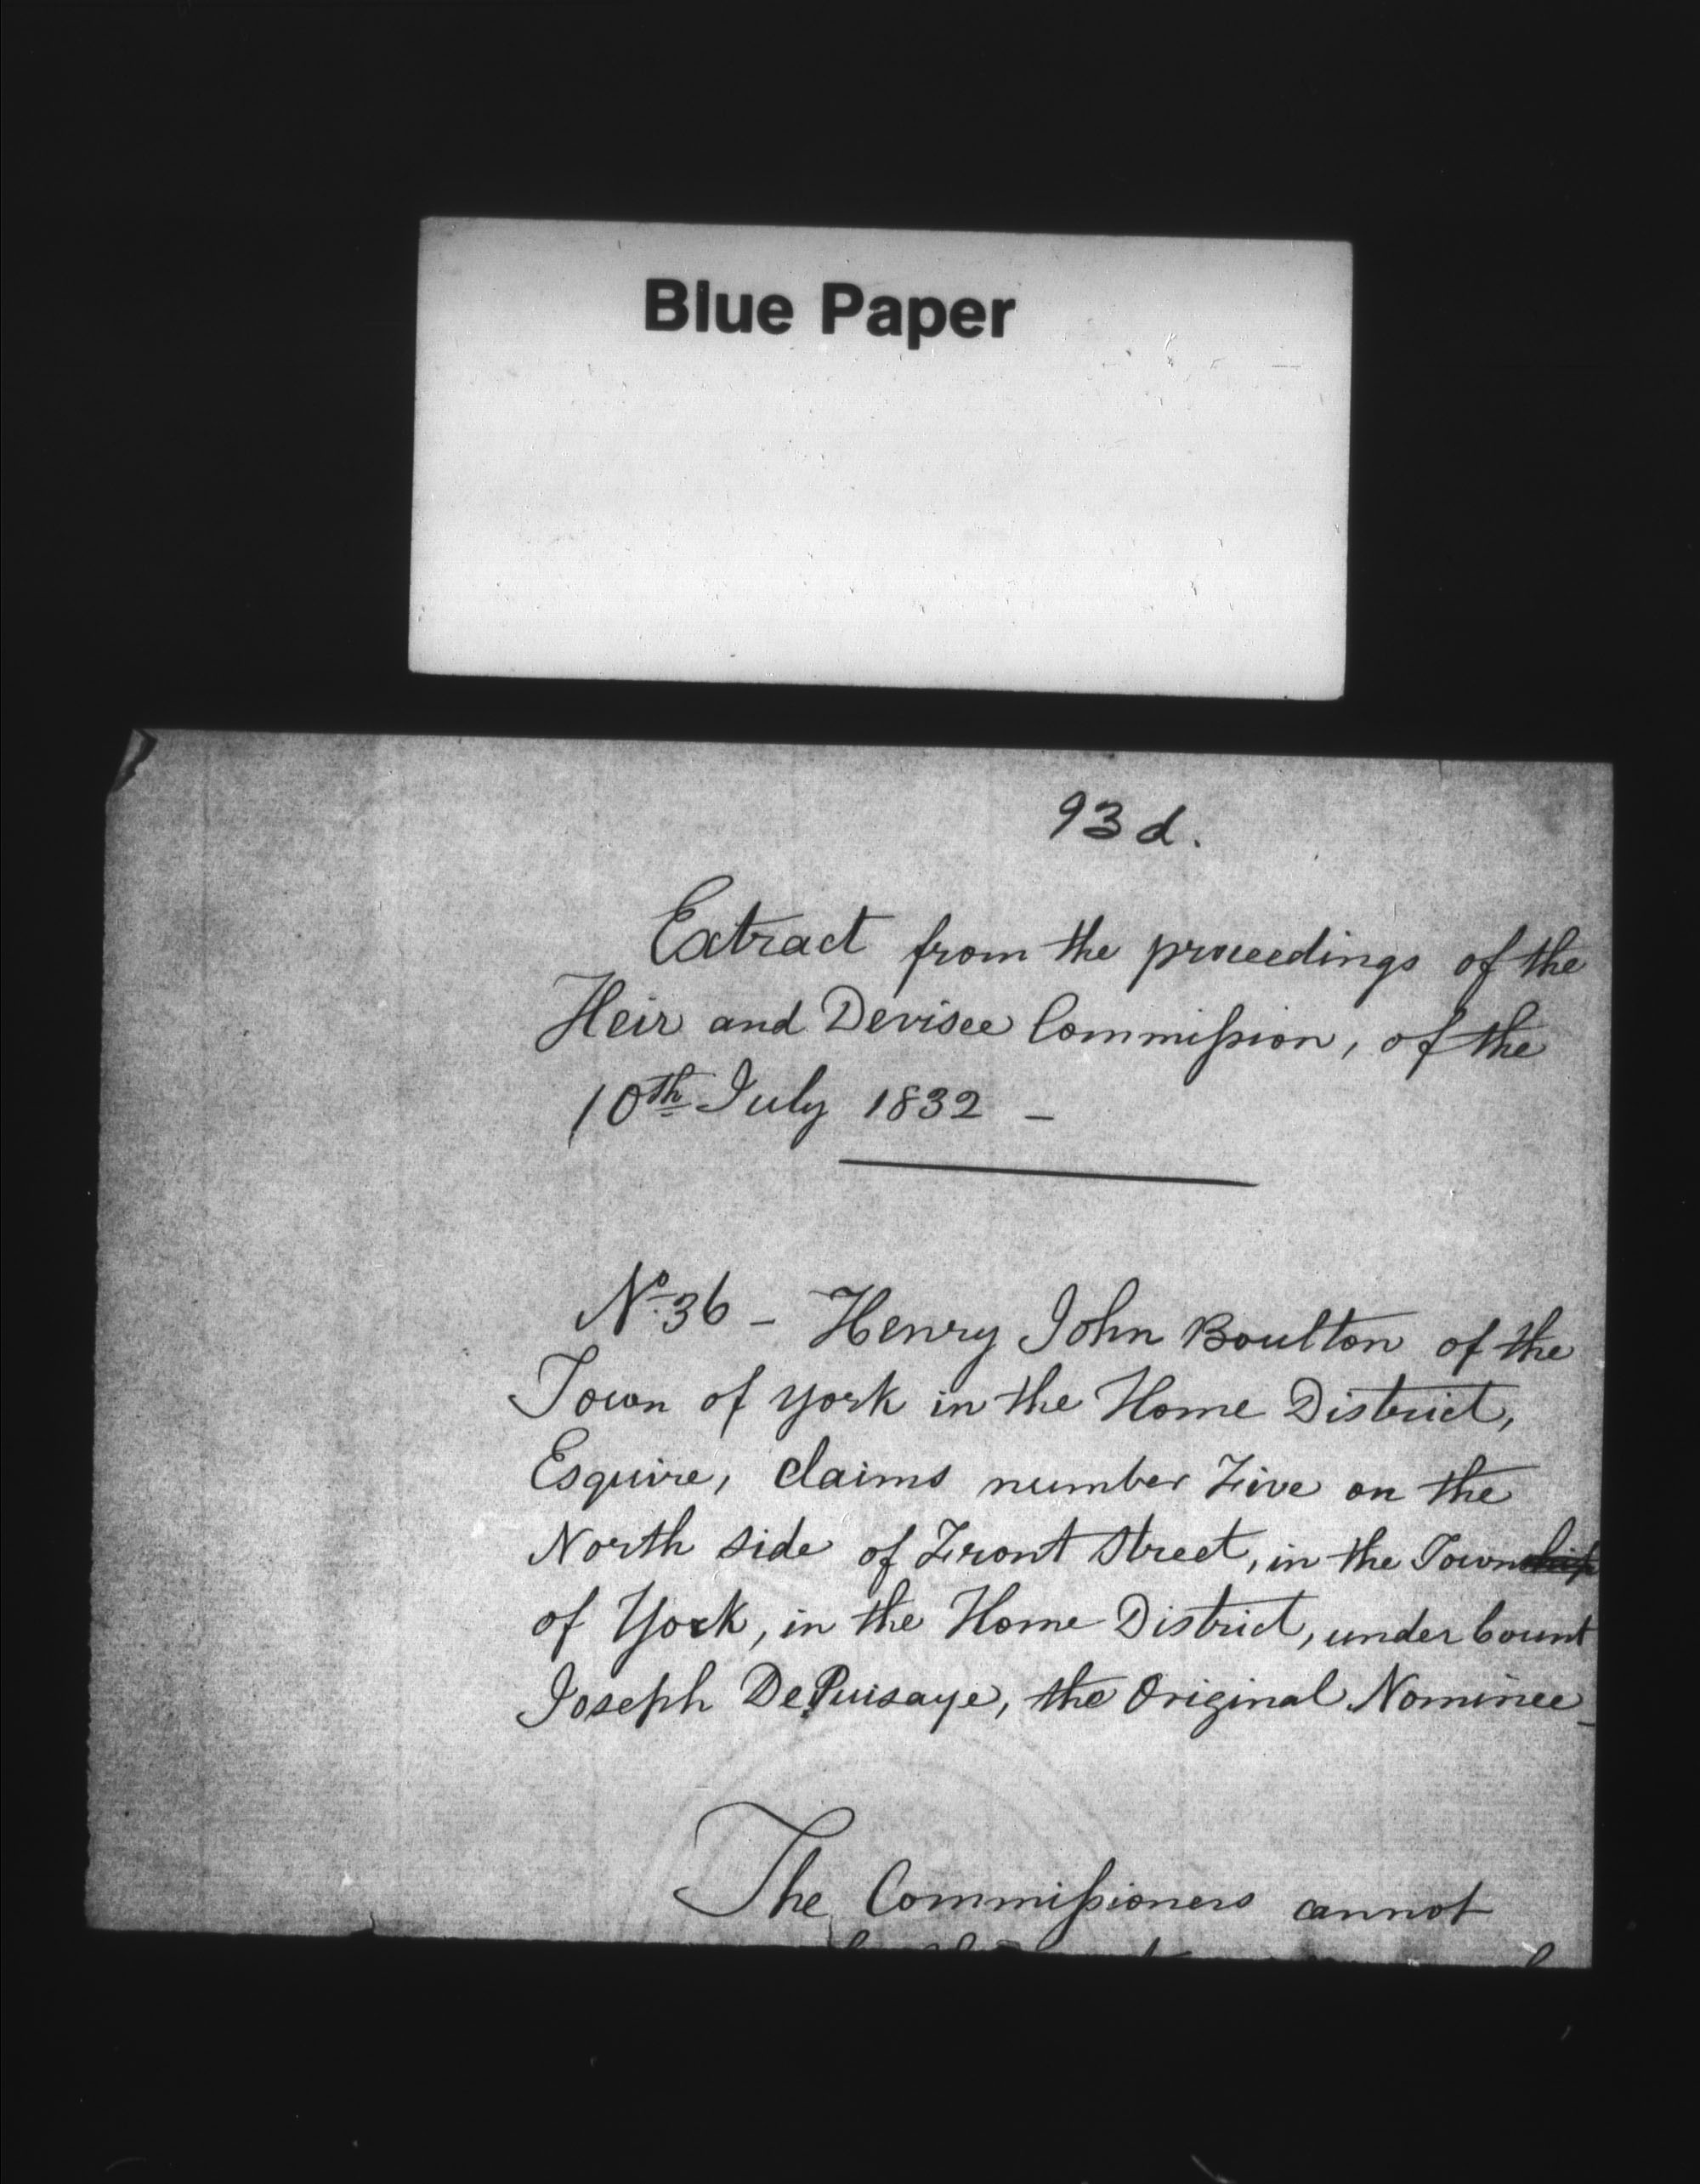 Blue Paper
93 d.
Extract from the proceedings of the
Heir and Devisee Commission, of the
10th July 1832 –
No. 36 – Henry John Boulton of the
Town of York in the Home District,
Esquire, claims number Five on the
North side of Front Street, in the Township
of York, in the Home District, under Count
Joseph DePuisaye, the Original Nominee –
The Commissioners cannot